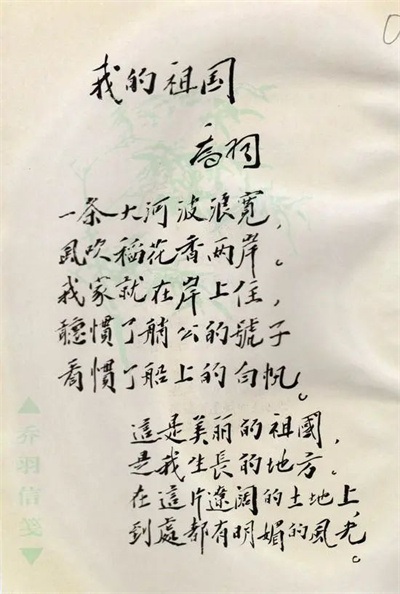 我的祖国
乔羽
一条大河波浪宽，
风吹稻花香两岸。
我家就在岸上住，
聽慣了艄公的號子
看慣了船上的白帆。
這是美丽的祖國，
是我生長的地方。
在這片遼阔的土地上，
到處都有明媚的風光。
▲乔羽信笺▼